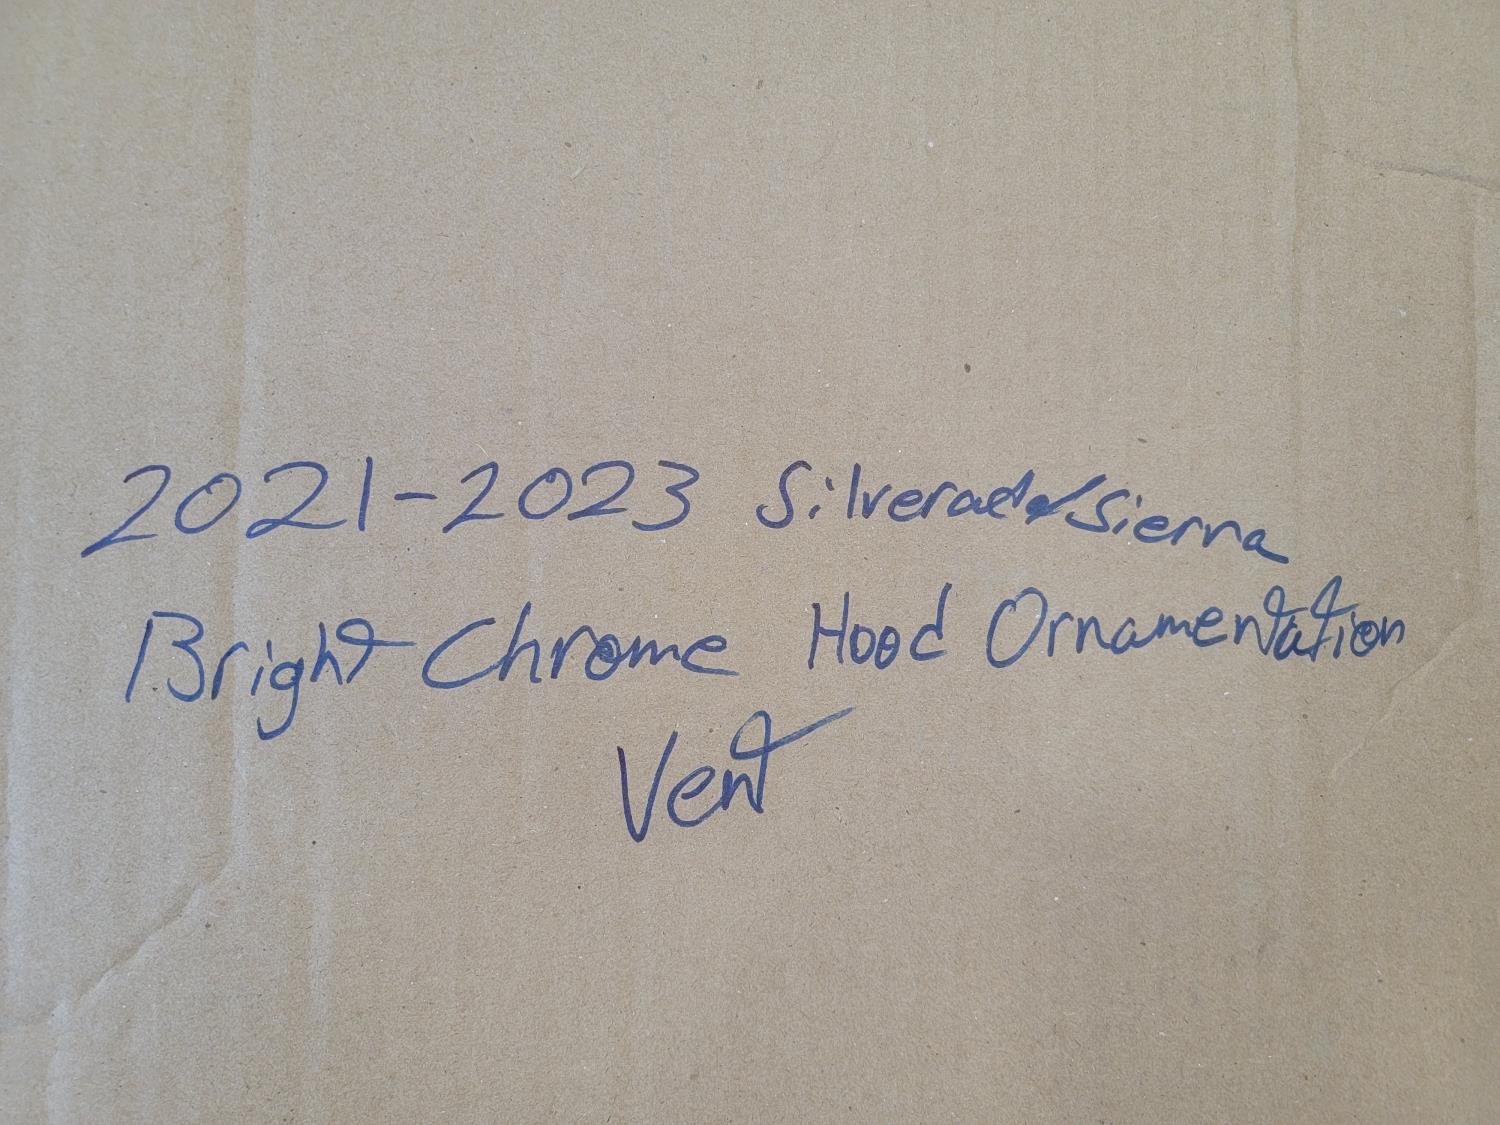 2021-2023 Silverado/Sierra
Bright Chrome Hood Ornamentation
Vent